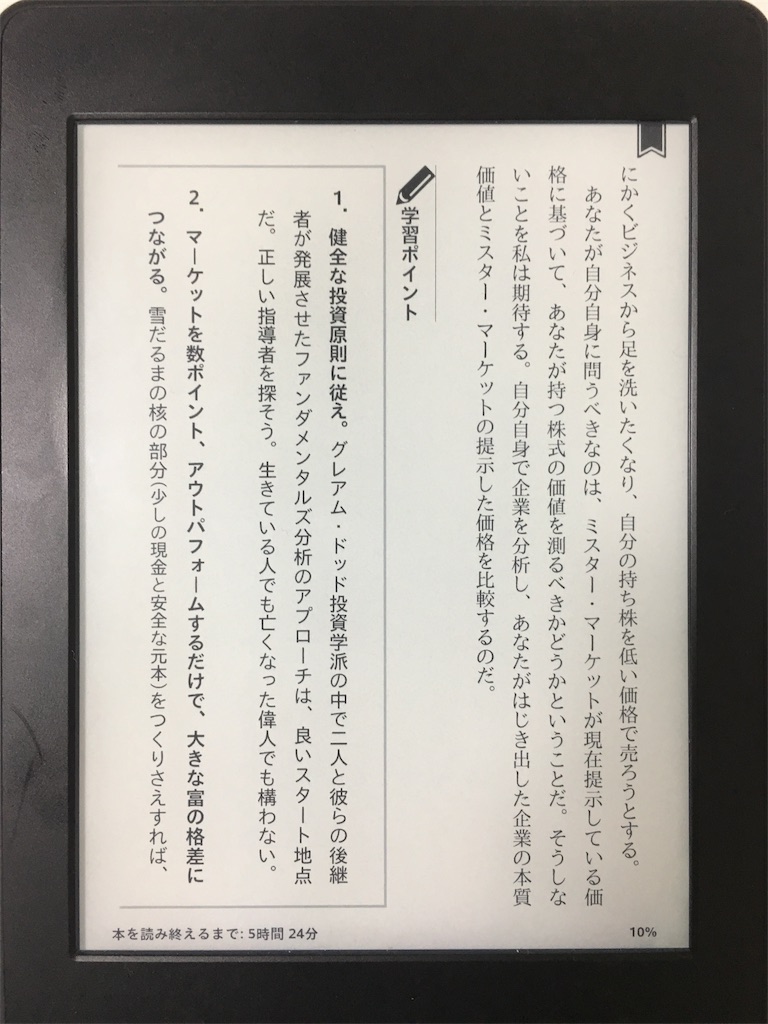 にかくビジネスから足を洗いたくなり、自分の持ち株を低い価格で売ろうとする。
あなたが自分自身に問うべきなのは、ミスター・マーケットが現在提示している価
格に基づいて、あなたが持つ株式の価値を測るべきかどうかということだ。そうしな
いことを私は期待する。自分自身で企業を分析し、あなたがはじき出した企業の本質
価値とミスター・マーケットの提示した価格を比較するのだ。
学習ポイント
1. 健全な投資原則に従え。グレアム・ドッド投資学派の中で二人と彼らの後継
者が発展させたファンダメンタルズ分析のアプローチは、良いスタート地点
だ。正しい指導者を探そう。生きている人でも亡くなった偉人でも構わない。
2. マーケットを数ポイント、アウトパフォームするだけで、大きな富の格差に
つながる。雪だるまの核の部分(少しの現金と安全な元本)をつくりさえすれば、
本を読み終えるまで: 5時間 24分
10%